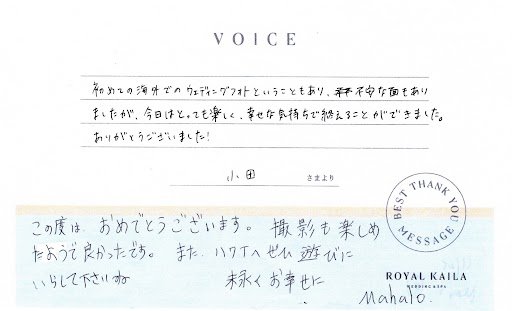 VOICE
初めての海外でのウェディングフォトということもあり、不安な面もあり
ましたが、今日はとっても楽しく、幸せな気持ちで終えることができました。
ありがとうございました!
小田 さまより
BEST THANK YOU MESSAGE
この度は、おめでとうございます。撮影も楽しめ
たようで良かったです。また、ハワイへぜひ遊びに
いらして下さいね 末永くお幸せに
ROYAL KAILA
WEDDING & SPA
Mahalo.